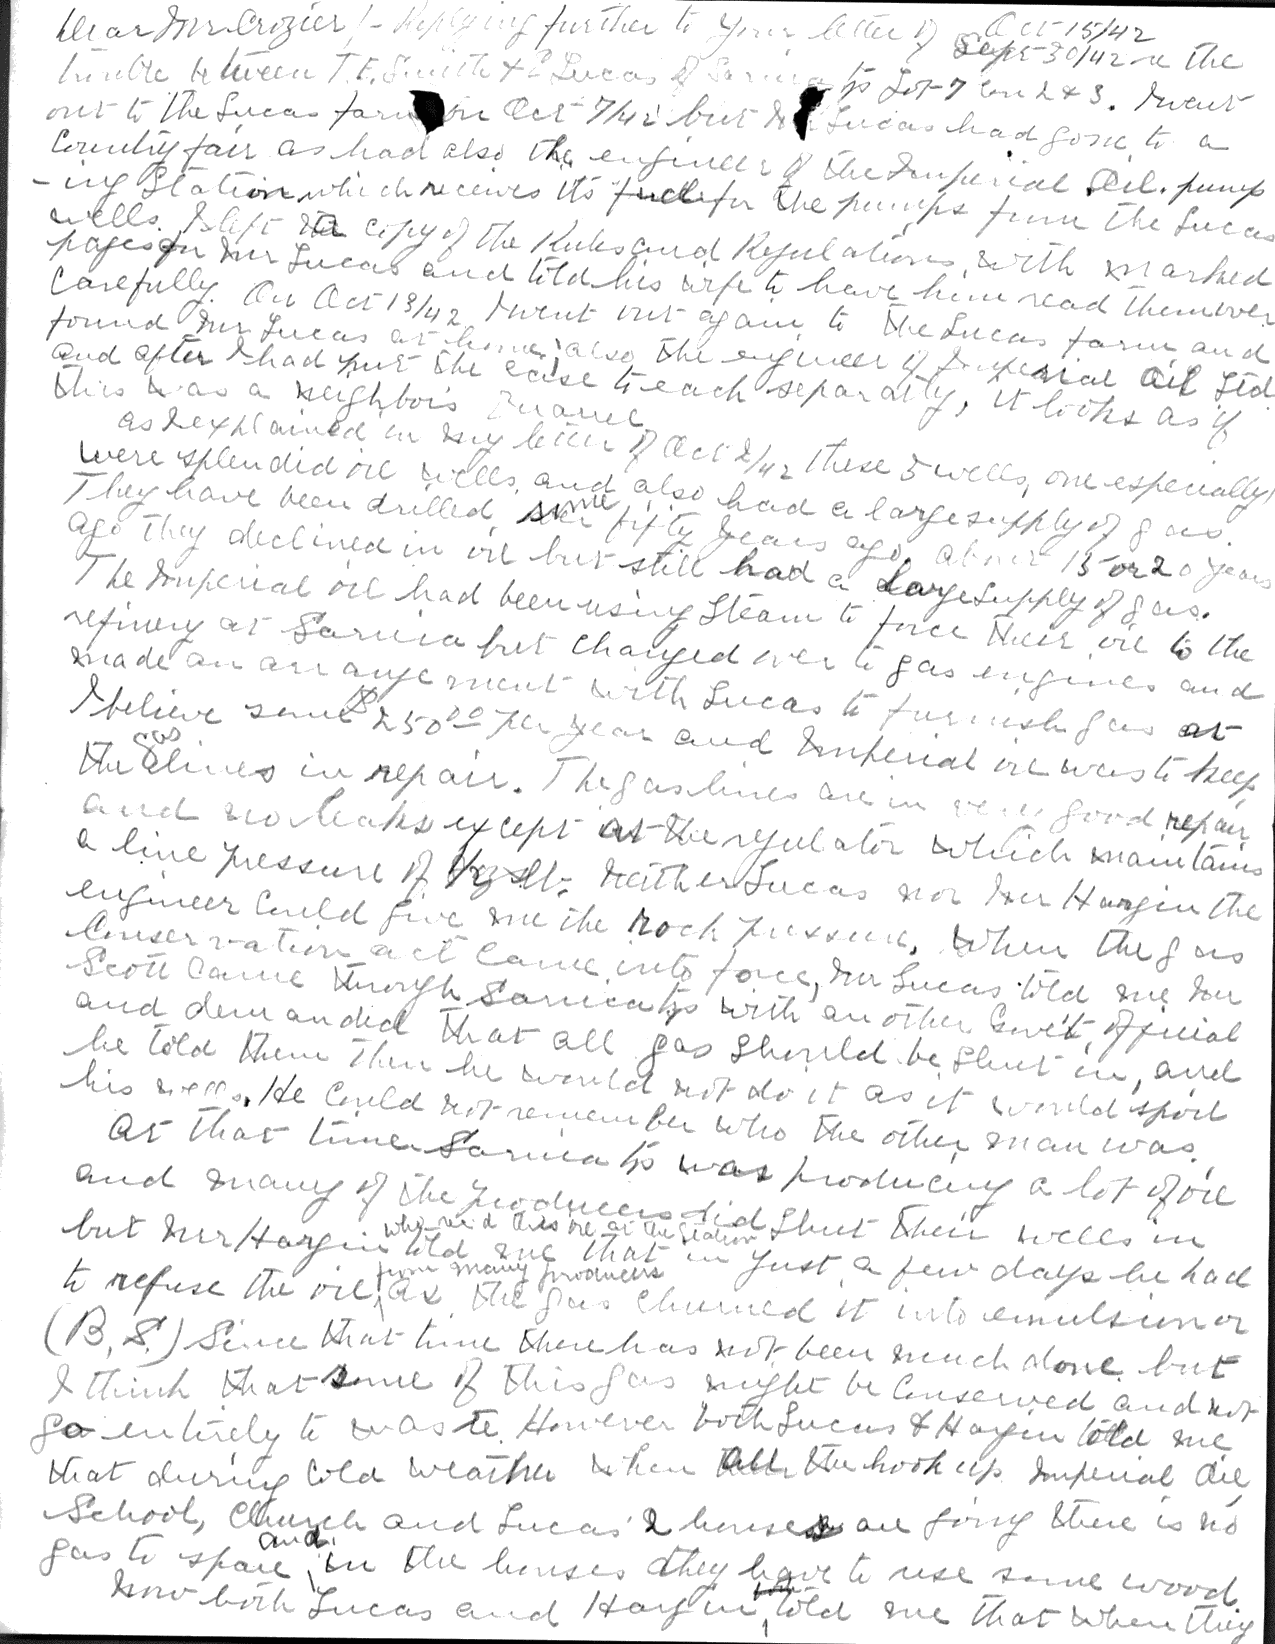 Oct 15/42
Dear Mr Crozier/- Replying further to your letter of Sept 30/42 re the
trouble between T.E. Smith & Lucas of Sarnia tp Lot 7 Con 2 & 3. I went
out to the Lucas farm on Oct 7/42 but Mr Lucas had gone to a
County fair as had also the engineer of the Imperial Oil. pump
-ing Station which receives its fuel for the pumps from the Lucas
wells. I left a copy of the Rules and Regulations, with marked
pages for Mr Lucas and told his wife to have him read them over
Carefully. On Oct 13/42 I went out again to the Lucas farm and
found Mr Lucas at home, also the engineer of Imperial Oil Ltd
and after I had put the case to each separatly, it looks as if
this was a neighbors
as I explained in my letter of Oct 2/42 these 5 wells, one especially,
were splendid oil wells, and also had a large supply of gas.
They have been drilled some fifty years ago, about 15 or 20 years
ago they declined in oil but still had a large supply of gas.
The Imperial oil had been using Steam to force their oil to the
refinery at Sarnia but changed over to gas engines and
made an arrangement with Lucas to furnish gas at
I believe some $250.00 per year and Imperial oil was to keep
the gas lines in repair. The gas lines are in very good repair
and no leaks except at the regulator which maintains
a line pressure of Neither Lucas nor Mr Hargin the
engineer could give me the rock pressure. When the gas
Conservation act came into force, Mr Lucas told me Mr
Scott came through Sarnia tp with another Gov't. official
and demanded that all gas should be shut in, and
he told them then he would not do it as it would spoil
his wells. He could not remember who the other man was.
At that time Sarnia tp was producing a lot of oil
and many of the producers did shut their wells in
but Mr Hargin who rec'd this oil at the Station told me that in just a few days he had
to refuse the oil from many producers as the gas churned it into emulsion or
(B.S.) Since that time there has not been much done but
I think that some of this gas might be conserved and not
go entirely to waste. However both Lucas & Hargin told me
that during cold weather when all the hook up. Imperial Oil,
School, Church and Lucas' 2 houses are going there is no
gas to spare and in the houses they have to use some wood.
Now both Lucas and Hargin told me that when they